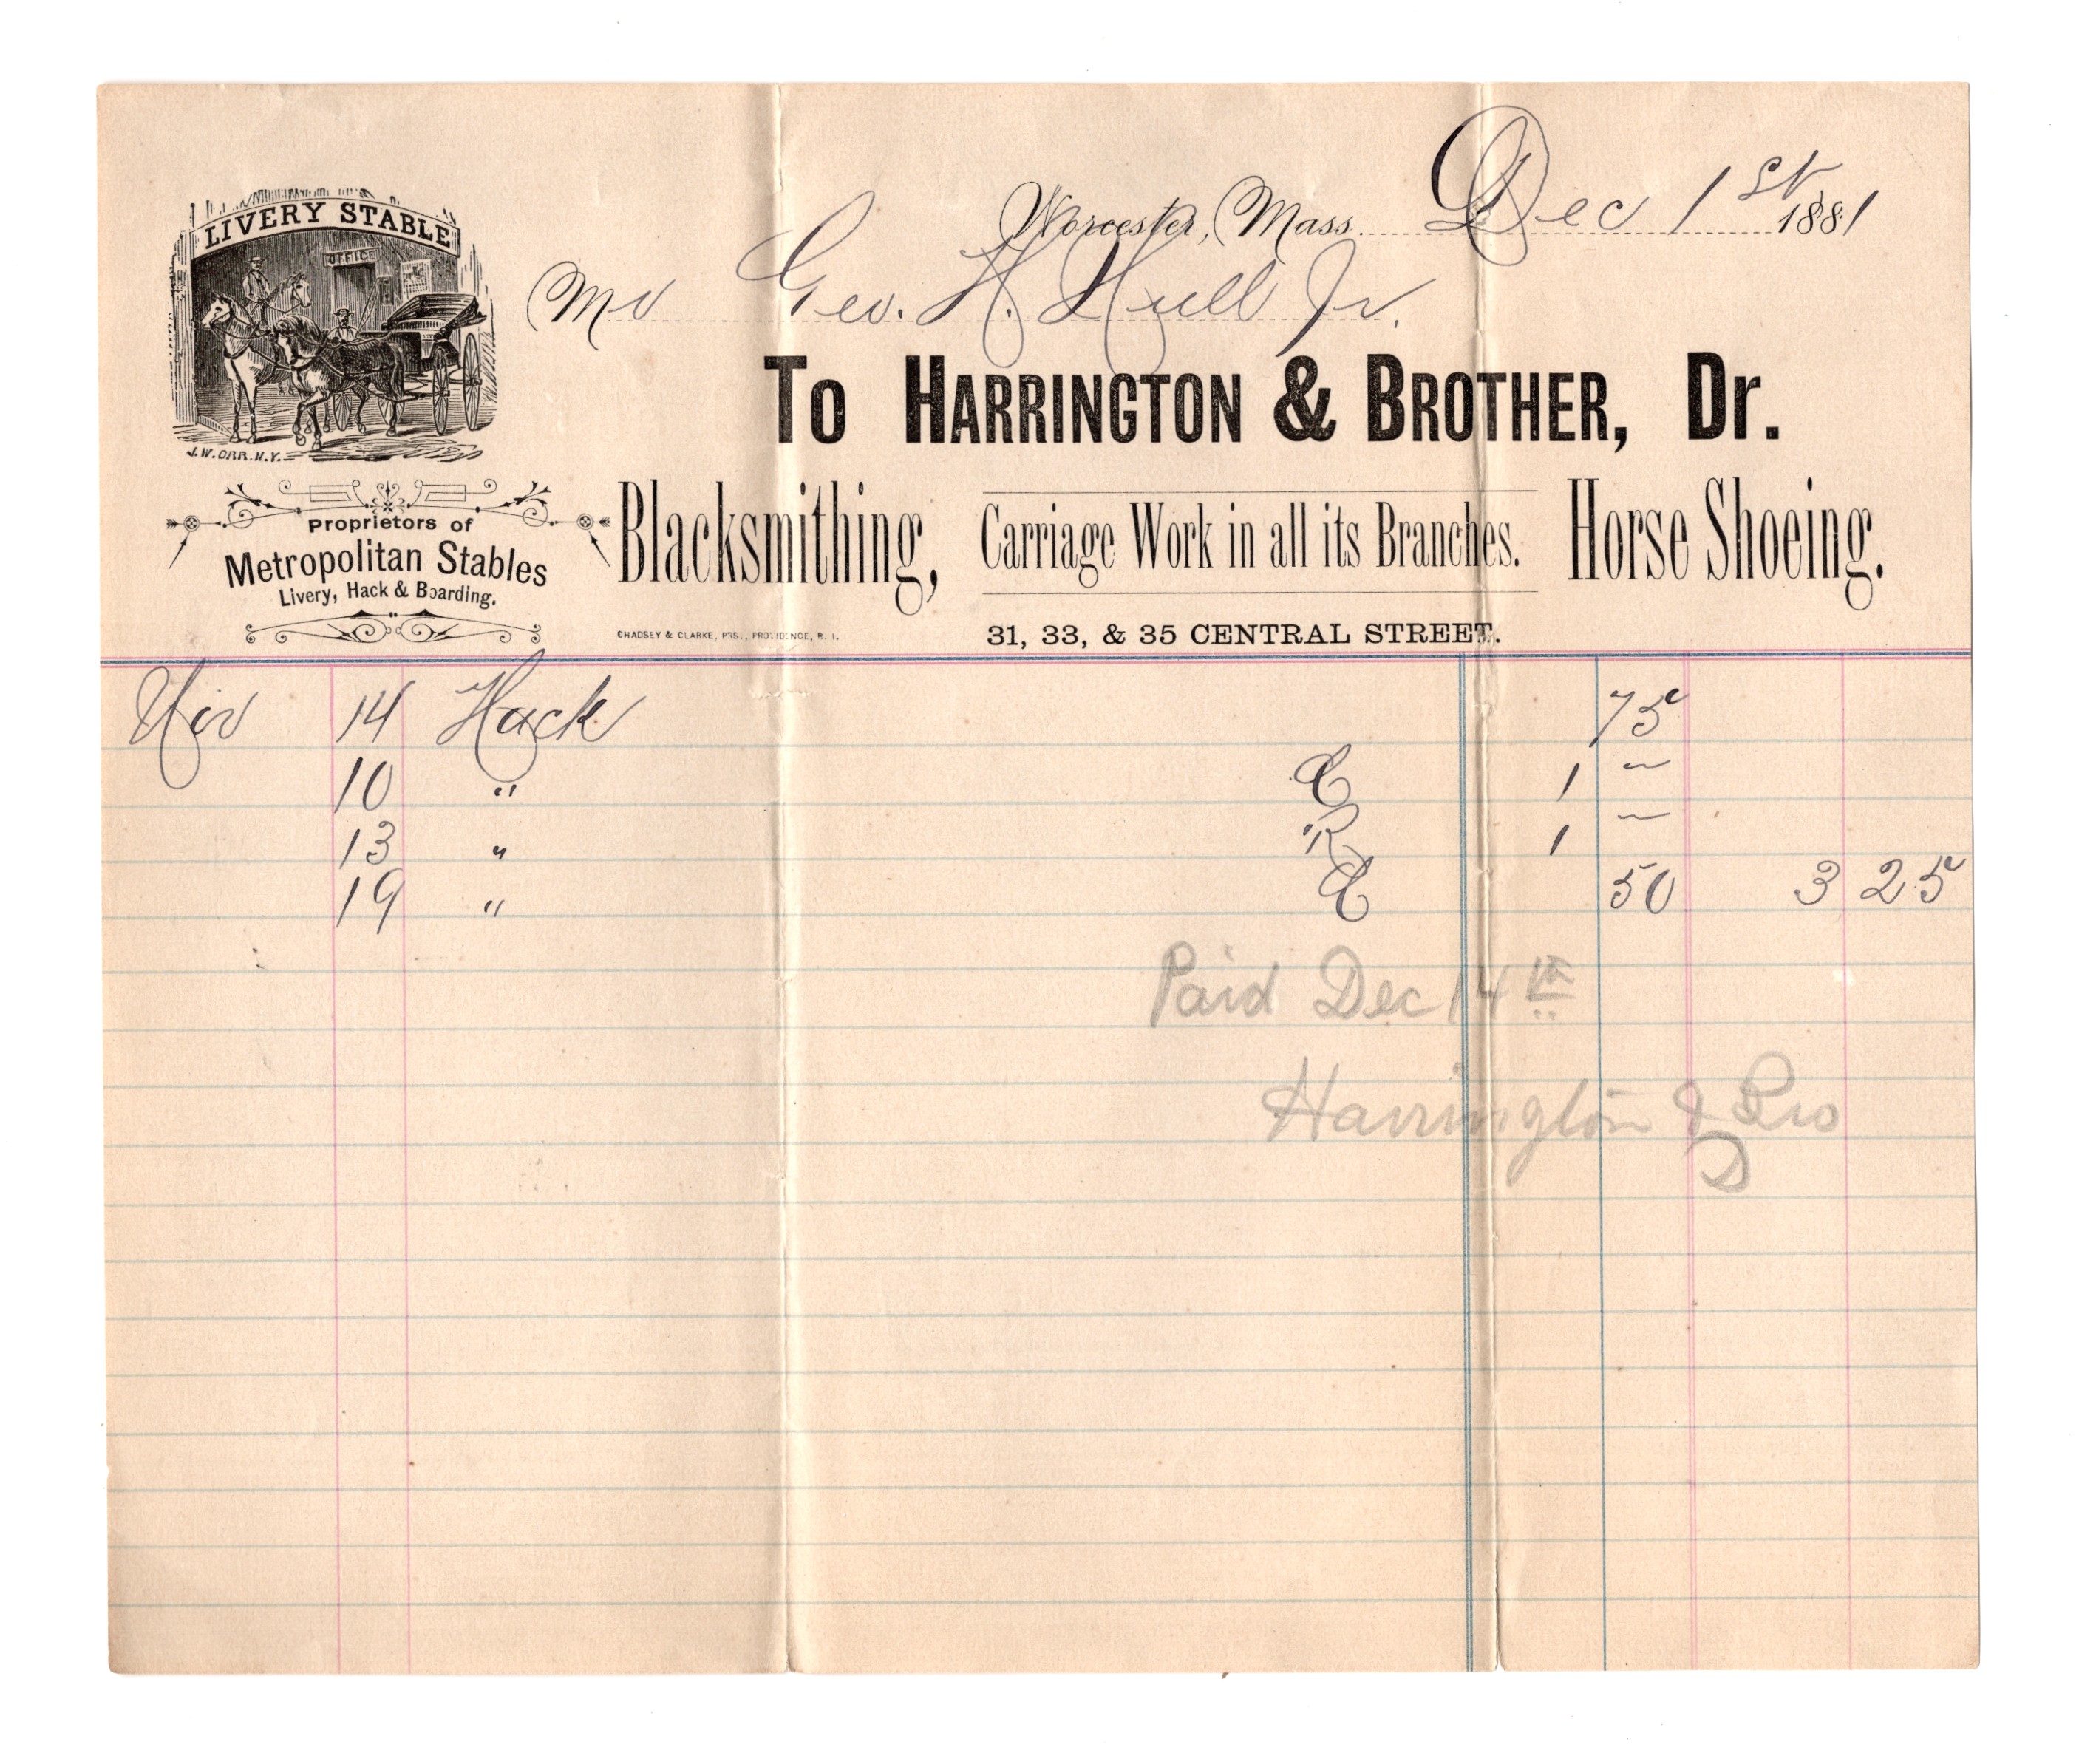 LIVERY STABLE
OFFICE
J.W. ORR. N.Y.
Worcester, Mass. Dec 1st 1881
Mr Geo. H. Hull Jr.
To HARRINGTON & BROTHER, Dr.
Proprietors of
Metropolitan Stables
Livery, Hack & Boarding.
Blacksmithing, Carriage Work in all its Branches. Horse Shoeing.
CHADSEY & CLARKE, PRS., PROVIDENCE, R. I.
31, 33, & 35 CENTRAL STREET.
Nov 14 Hack 75
10 " C 1 –
13 " R 1 –
19 " C 50 3 25
Paid Dec 14th
Harrington & Bro
D